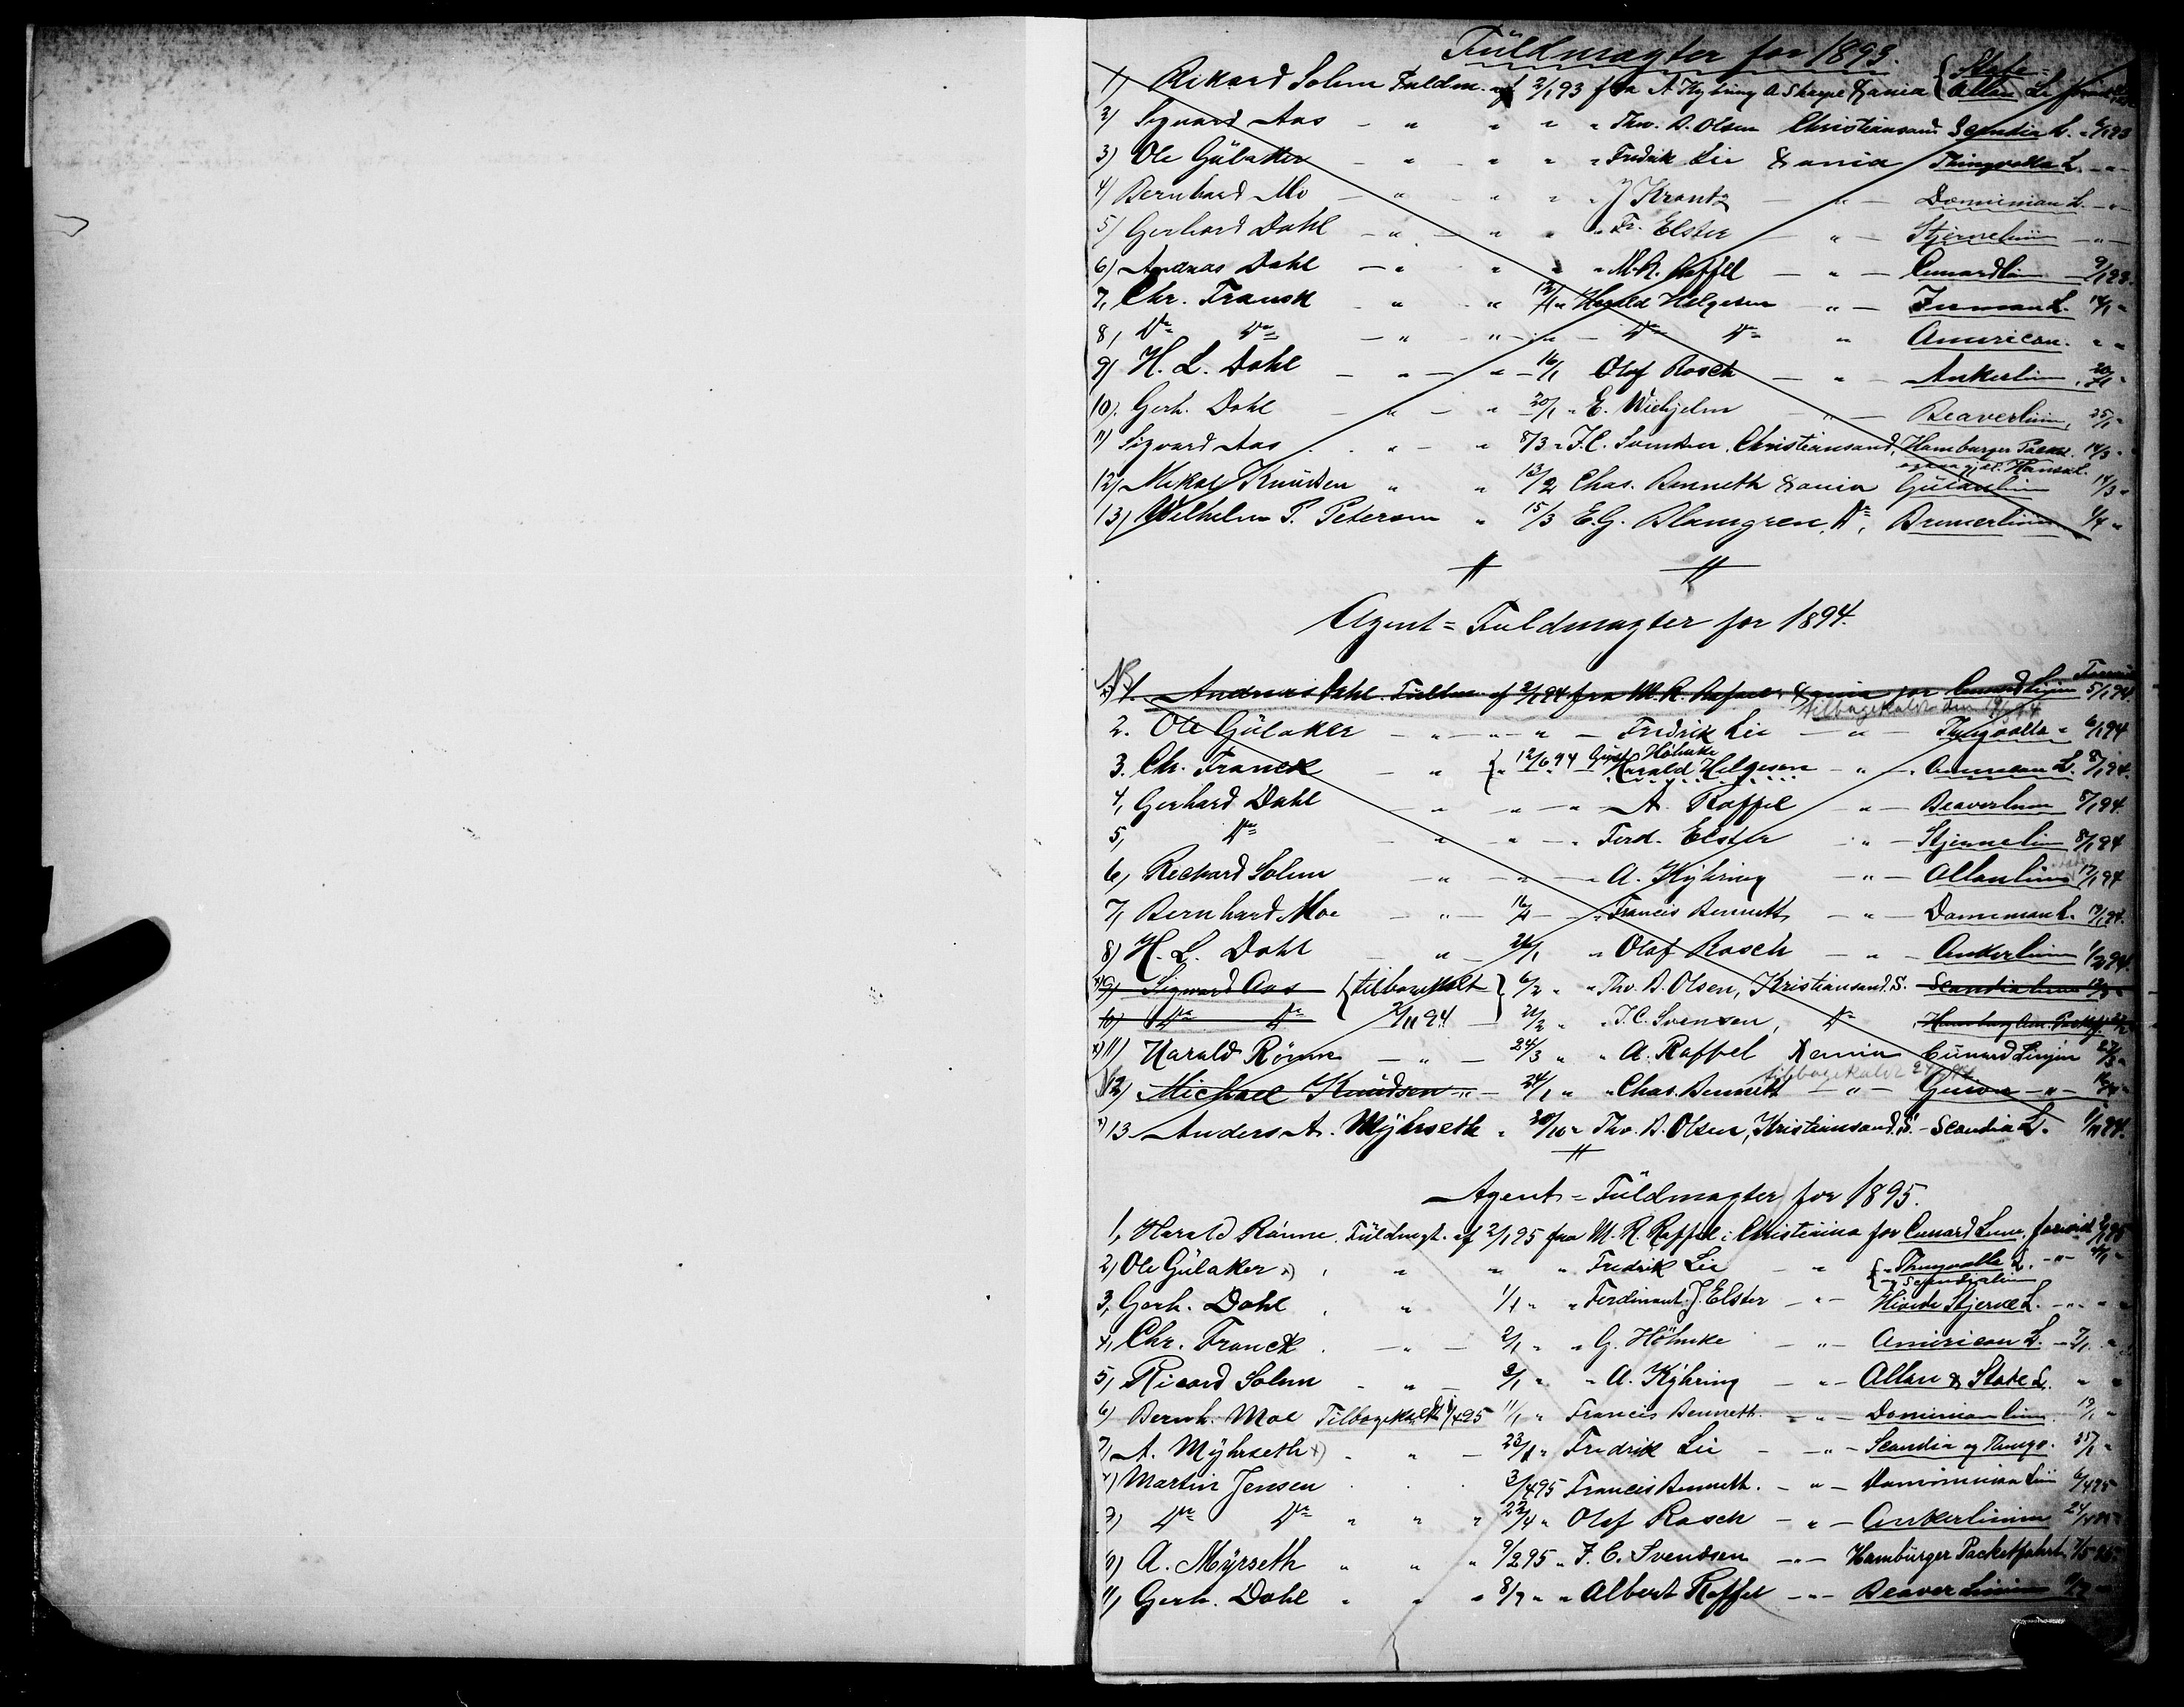 Fuldmagter for 1893.
1) Rikard Solem Fuldm. af 2/1 93 fra A Kyhring & Sharpe Xania {State- Allan Li
2) Sigvard Aas - " " " " Thv. B. Olsen Christiansand Scandia L.
3) Ole Gulaker - " - " " " Fredrik Lie Xania Thingvalla L. - " -
4) Bernhard Mo - " - " " " J Krantz - " - Dominion L. - " -
5) Gerhard Dahl - " - " " " Fr. Elster - " - Stjernelinie - " -
6) Andreas Dahl - " " " " M.R. Raffel - " - Cunardlin 9/1 93.
7, Chr. Franck - " " 12/1 " Harald Helgesen - " - Inman L. 14/1 "
8, Do Do - " - " - " - Do Do " American. " "
9) H. L. Dahl - " - " - 16/1 Olaf Rosch - " - Ankerlinien, 20/1 "
10). Gerh. Dahl - " - " 20/1 " E. Wiehjelm - " - Beaverlinien, 25/1 "
11) Sigvard Aas . " - " 8/3 " F.C. Svendsen, Christiansand, Hamburger Packet. 14/3 "
Hansa L.
12) Mikal Knudsen " " 13/2 Chas. Benneth Xania Guionlinien 14/3 "
13) Wilhelm P. Petersen " 15/3 E.G. Blomgren, Do, Bremerlinien 4/4 "
Agent = Fuldmagter for 1894.
1. Andreas Dahl Fuldm. af 2/1 94 fra M.R. Raffel, Xania for Cunard Linjen 5/1 94
tilbagekaldt den
2. Ole Gulaker - " - " - " - Fredrik Lie - " - Thingvalla " 6/1 94
3. Chr. Franck - " { " 12/6 94 Gust Höhncke
Harald Helgesen - " - American L. 8/1 94.
4, Gerhard Dahl - " - " - " - A. Raffel - " - Beaverlinien 8/1 94.
5, Do - " - " - " Ferd. Elster - " - Stjernelin 8/1 94
6, Reckard Solem - " - " - " A. Kyhring - " - Allanlinien 17/1 94
7, Bernhard Moe - " - 16/1 - " Francis Bennett - " - Dominion L. 19/1 94.
8) H. L. Dahl - " - 26/1 " Olaf Rosch - " - Ankerlinien 1/2 94.
9) Sigvard Aas {tilbagekalt} 6/2 " " Thv. B. Olsen, Kristiansand. S. Scandia
10) Do Do 2/11 94 - 21/2 " " F.C. Svensen, Do,
11) Harald Rönne - " - 24/3 " " A. Raffel Xania Cunard Linjen 27/3 "
tilbagekaldt
12) Michael Knudsen - " - 24/1 " " Chas. Bennett - " - Guion - " -
13 Anders A. Myhrseth " 30/10 " Thv. B. Olsen, Kristiansand. S. - Scandia L. 1/11 94.
Agent = Fuldmagter for 1895.
1, Harald Rönne, Fuldmgt. af 2/1 95 fra M. R. Raffel i Christiania for Cunard Linn.
2) Ole Gulaker x) , " " " Fredrik Lie - " { " Thingvalla L. - " - 4/1 "
og Scandialinien
3, Gerh. Dahl . " 1/1 " " Ferdinant J. Elster - " - Hvide Stjerne L. - " "
4, Chr. Franck . - " - 2/1 " " G. Höhncke - " - American L. - 7/1 "
5, Ricard Solem - " - 2/1 " " A. Kyhring - " - Allan & State L. " "
6) Bernh. Moe Tilbagekaldt 1/4 95 11/1 " Francis Bennett - " - Dominionlinien 19/1 "
7, A. Myhrseth x) . " - 23/1 " Fredrik Lie - " - Scandia og Thingv. 25/1 "
Martin Jensen . . 3/4 95 Francis Bennett. - " - Dominion Lin 6/4 95
9) Do Do " " " 22/4 " Olaf Rosch - " - Ankerlinien 24/4 95
10) A. Myrseth " " " 9/2 95 " F. C. Svendsen - " - Hamburger Packetfahrt 7/5 95
11) Gerh. Dahl " " " 8/7 " " Albert Raffel - " - Beaver Linien 11/7 "